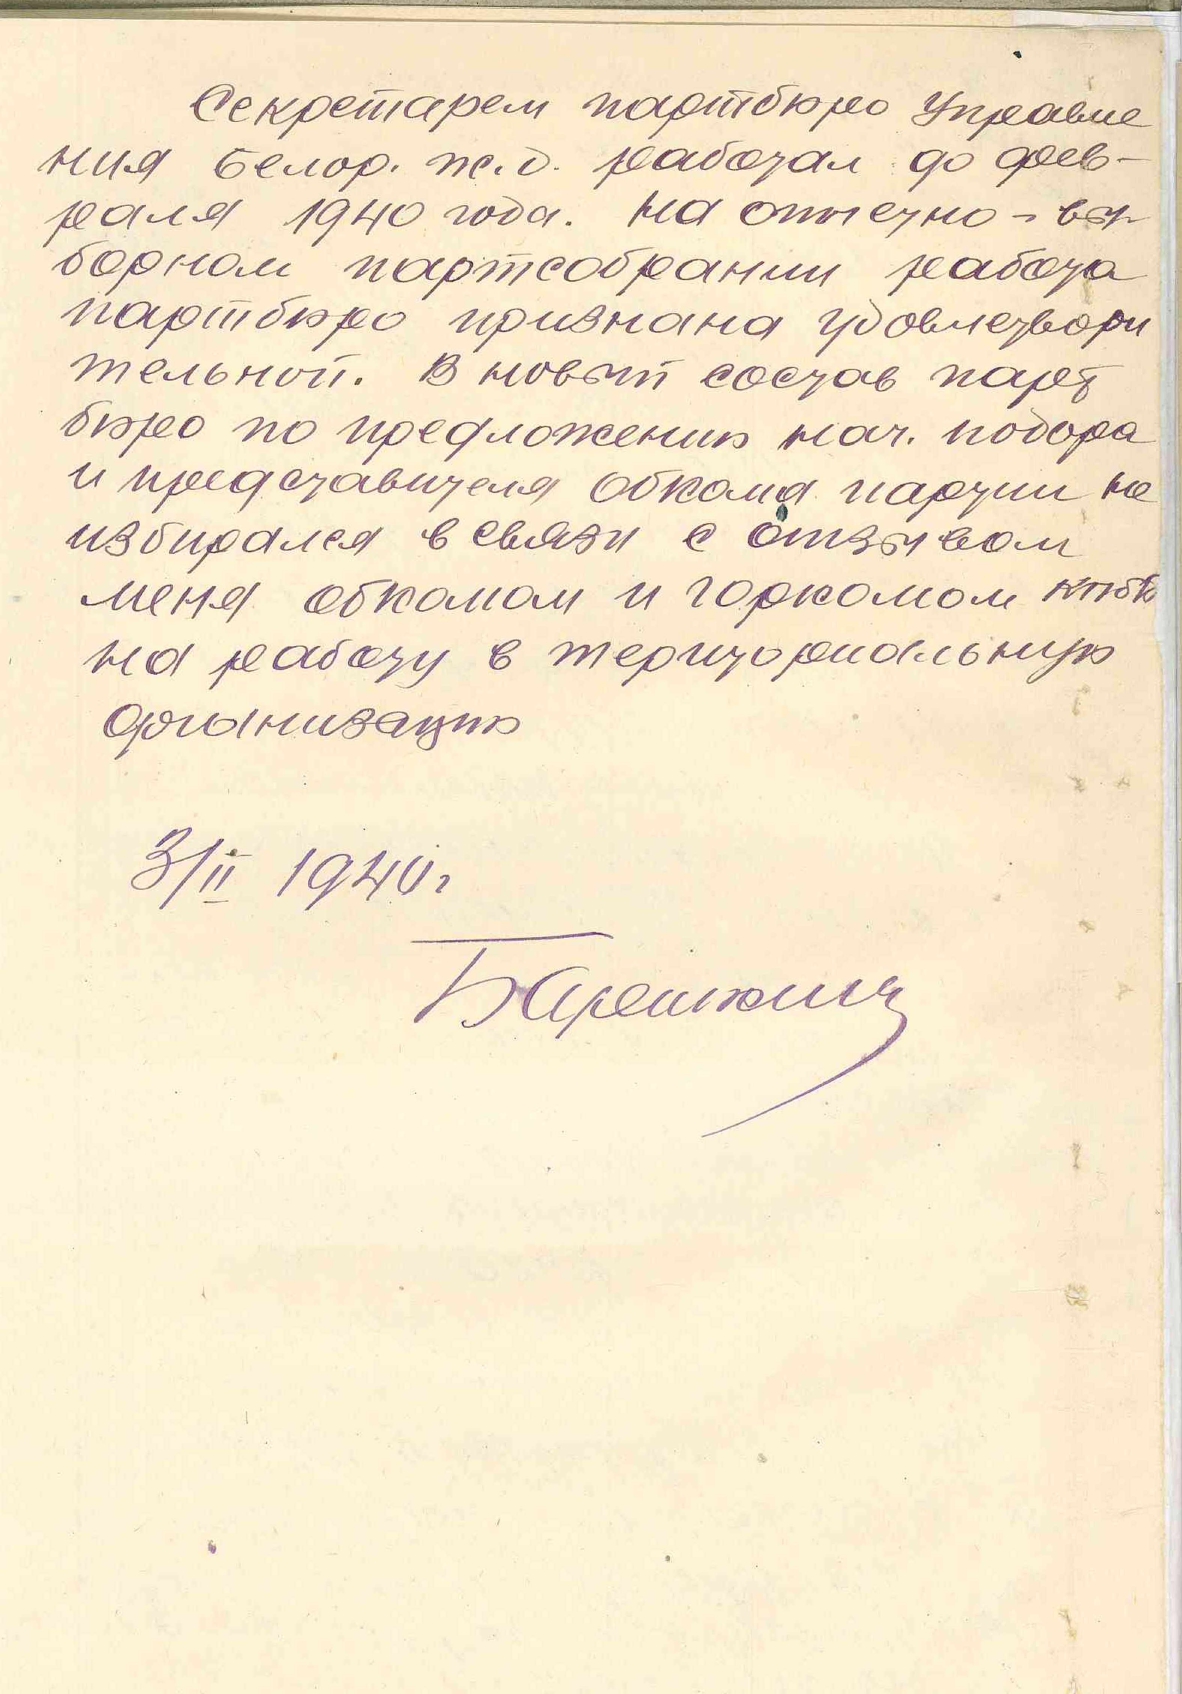 Секретарем партбюро Управле
ния Белор. ж.д. работал до фев-
раля 1940 года. На отчетно-вы-
борном партсобрании работа
партбюро признана удовлетвори
тельной. В новый состав парт
бюро по предложению нач. подора
и представителя обкома партии не
избирался в связи с отзывом
меня обкомом и горкомом КПбБ
на работу в территориальную
организацию
3/II 1940г